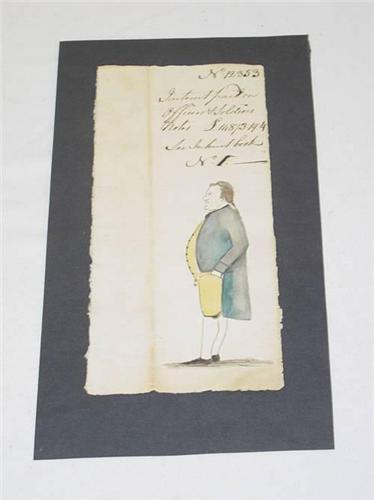 No 12353
Interest paid on
Officers & Soldiers
Notes $ 14873.19.4
See Interest book
No 1